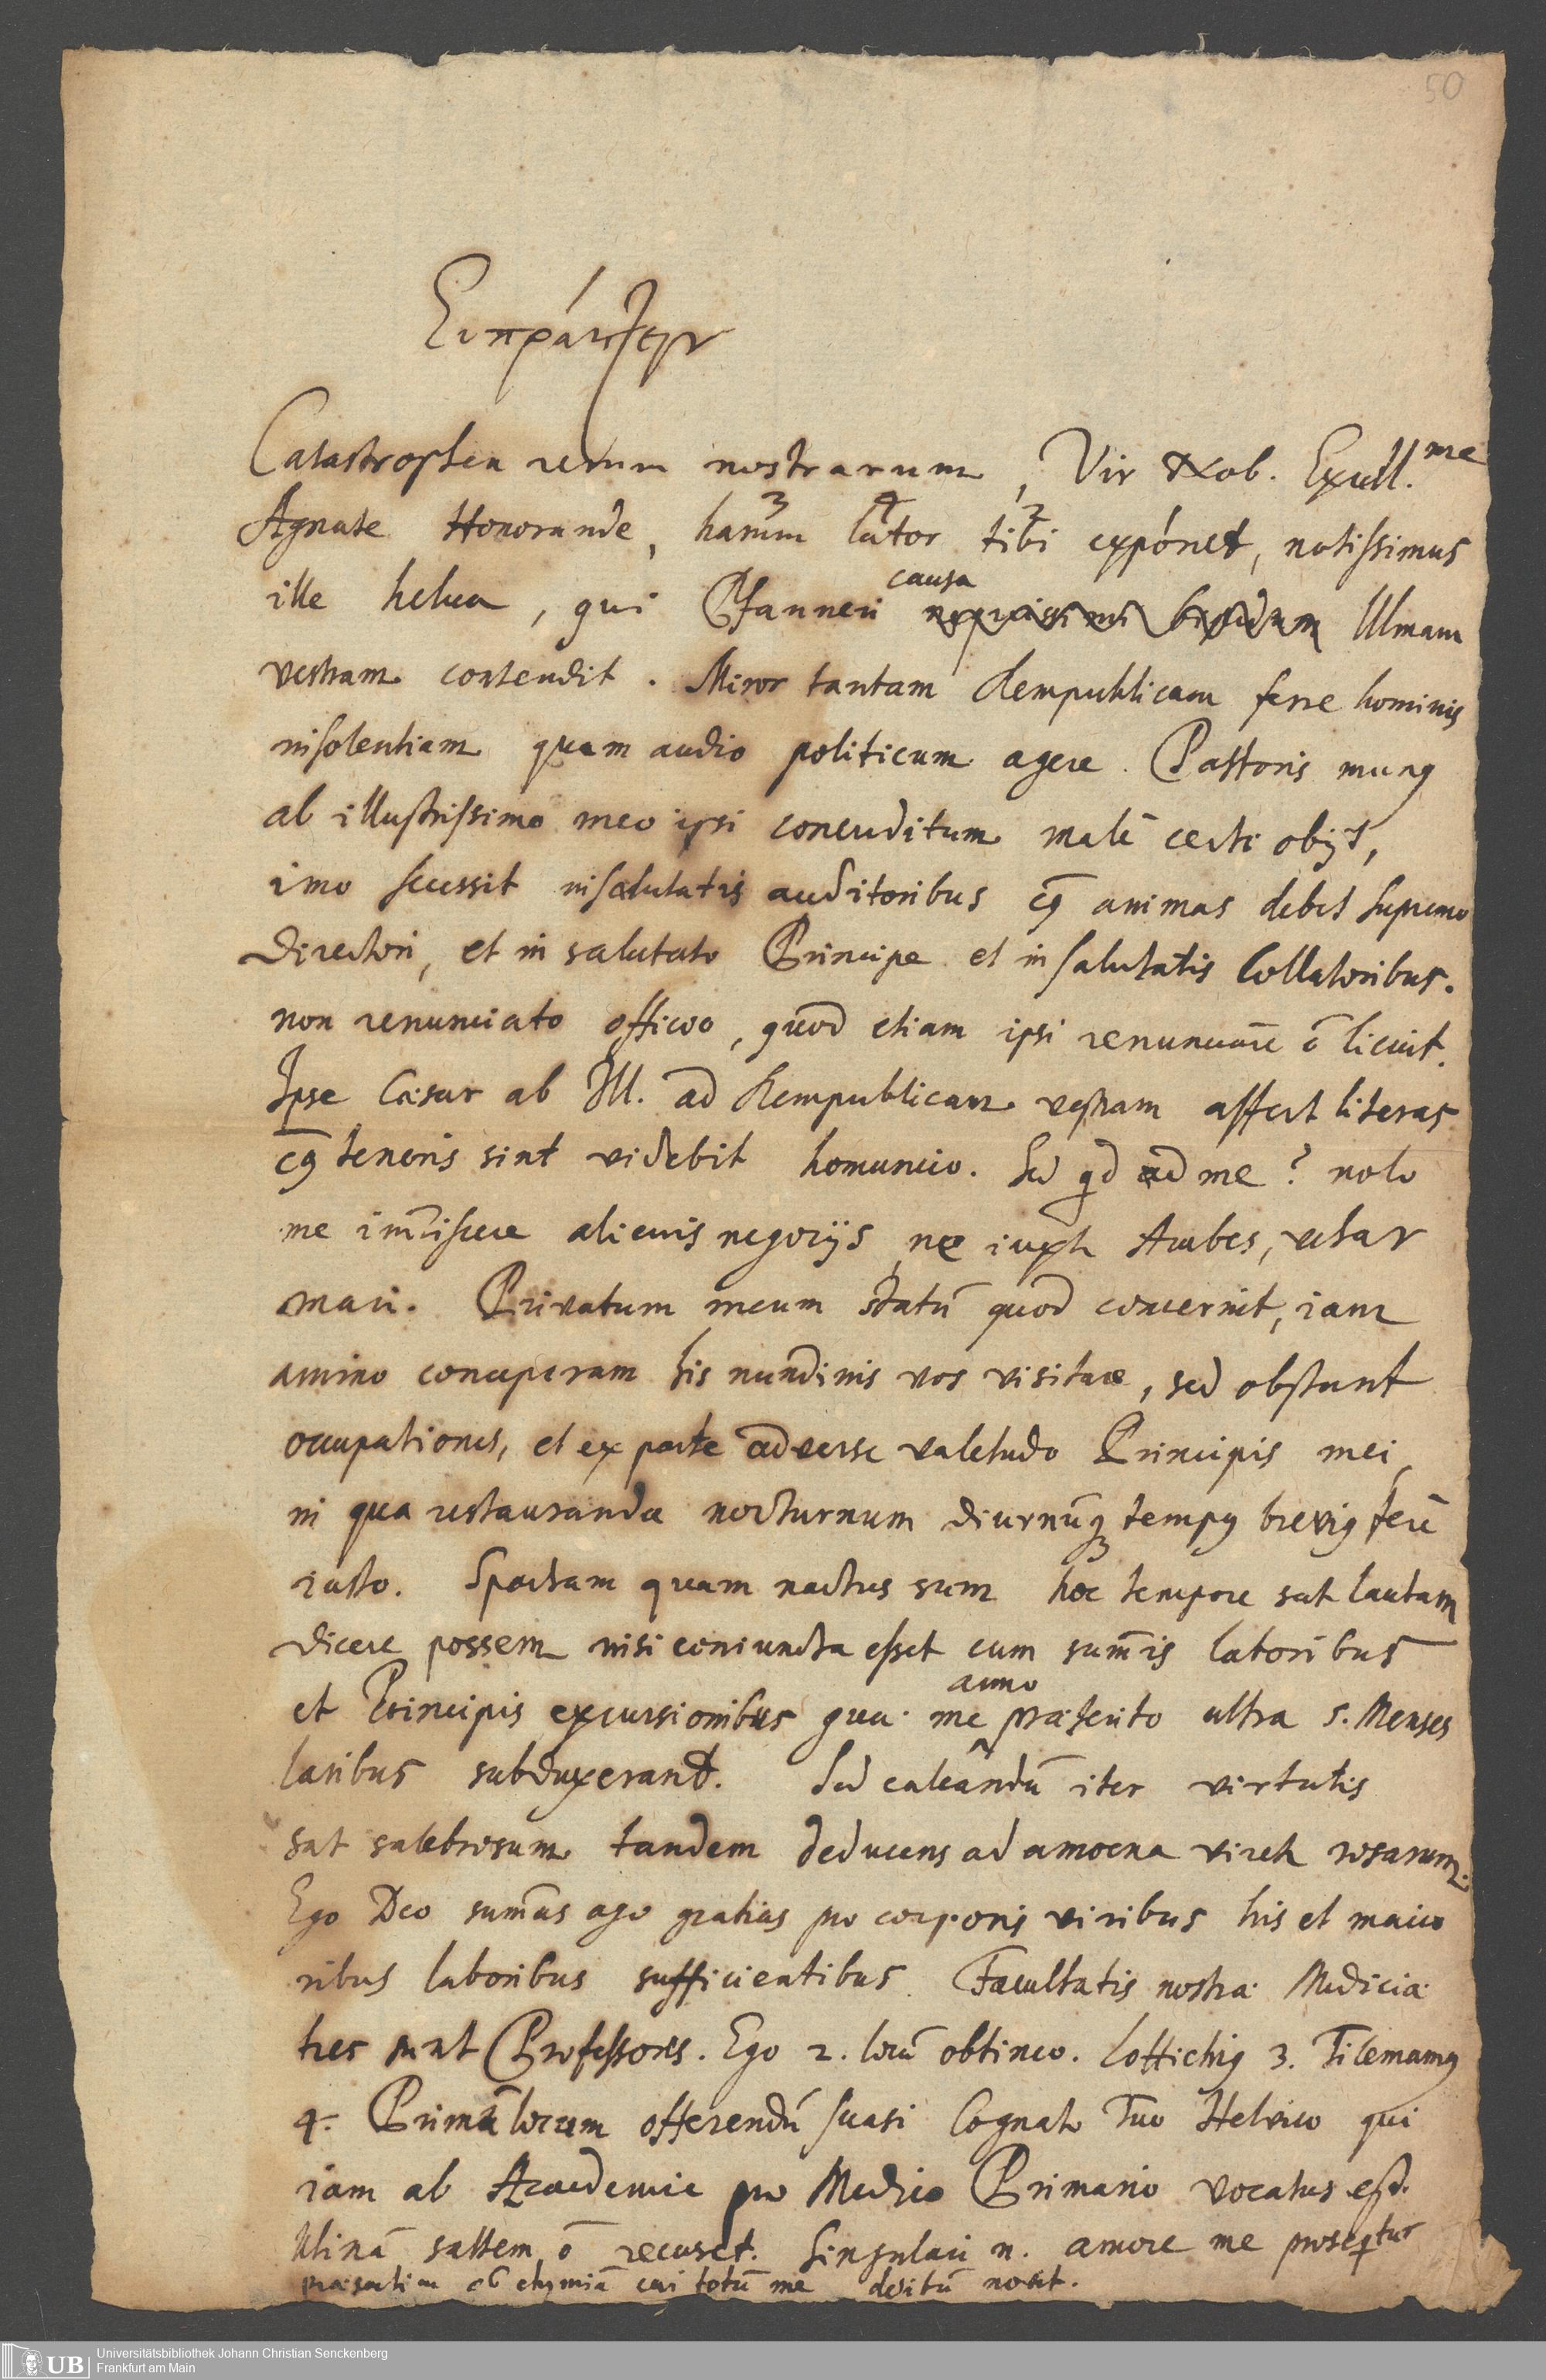 50
Ευπράττειν
Catastrophen rerum nostrarum, Vir Nob. Excell.me
Agnate Honorande, harum lator tibi exponet, notissimus
3 4 2
ille heluo, qui Pfanneri causa Ulmam
vestram contendit. Miror tantam Rempublicam ferre hominis
insolentiam quem audio politicum agere. Pastoris mung
ab illustrissimo meo ipsi concreditum malè certè obijt,
imo secessit insalutatis auditoribus animas debet supremo
Directori, et insalutato Principe et insalutatis Collatoribus.
non renunciato officio, quod etiam ipsi renunciare ō licuit.
Ipse Cæsar ab Ill. ad Rempublicam vestram affert literas
tenoris sint videbit homuncio. Sed qd ad me? nolo
me im̄iscere alienis negocijs, ne iuxta Arabes, vehar
mari. Privatum meum statū quod concernit, iam
animo conceperam his nundinis vos visitare, sed obstant
occupationes, et ex parte adversa valetudo Principis mei,
in qua restauranda nocturnum diurnūq tempg brevig ferè
iusto. Spartam quam nactus sum hoc tempore sat lautam
dicere possem nisi coniuncta esset cum sum̄is laboribus
et Principis excursionibus quæ me anno præterito ultra 5. Menses
laribus subduxerant. Sed calcandū iter virtutis
sat salebrosum tandem deducens ad amoena vireta rosarum.
Ego Deo sum̄as ago gratias pro corporis viribus his et maio
ribus laboribus sufficientibus. Facultatis nostræ Medicæ
tres sunt Professores. Ego 2. locū obtineo. Lottichig 3. Tilemamg
4. Primū locum offerendū suasi Cognato Tuo Helvico qui
iam ab Academia pro Medico Primario vocatus est.
Utinā saltem ō recuset. Singulari n. amore me proseqtur
præsertim ob chymiā cui totū me deditū novit.
UB Universitätsbibliothek Johann Christian Senckenberg
Frankfurt am Main